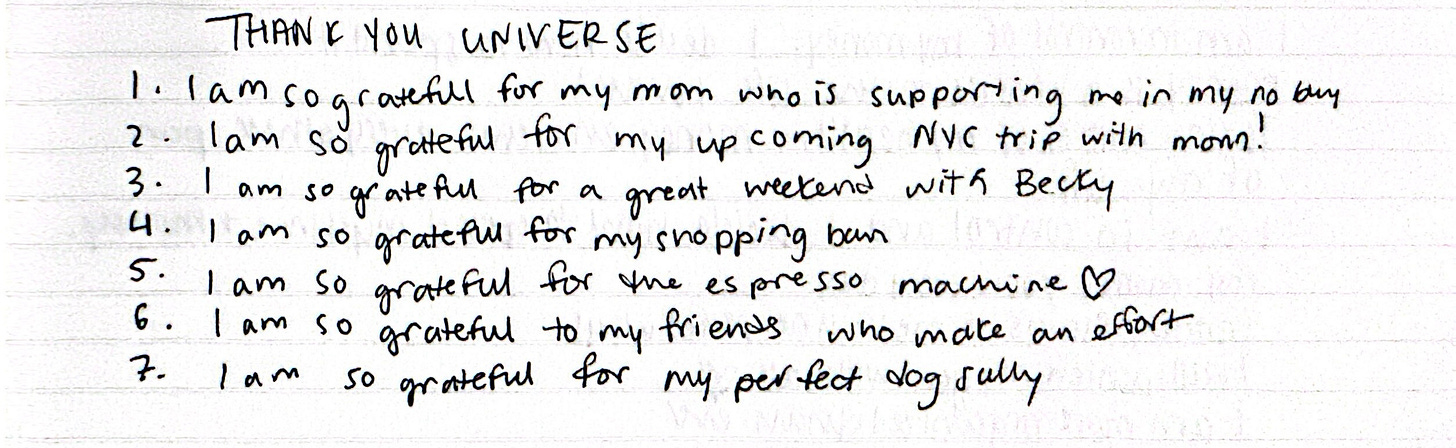 THANK YOU UNIVERSE
1. I am so gratefull for my mom who is supporting me in my no buy
2. I am so grateful for my upcoming NYC trip with mom!
3. I am so grateful for a great weekend with Becky
4. I am so grateful for my shopping ban
5. I am so grateful for the espresso machine ♡
6. I am so grateful to my friends who make an effort
7. I am so grateful for my perfect dog sully